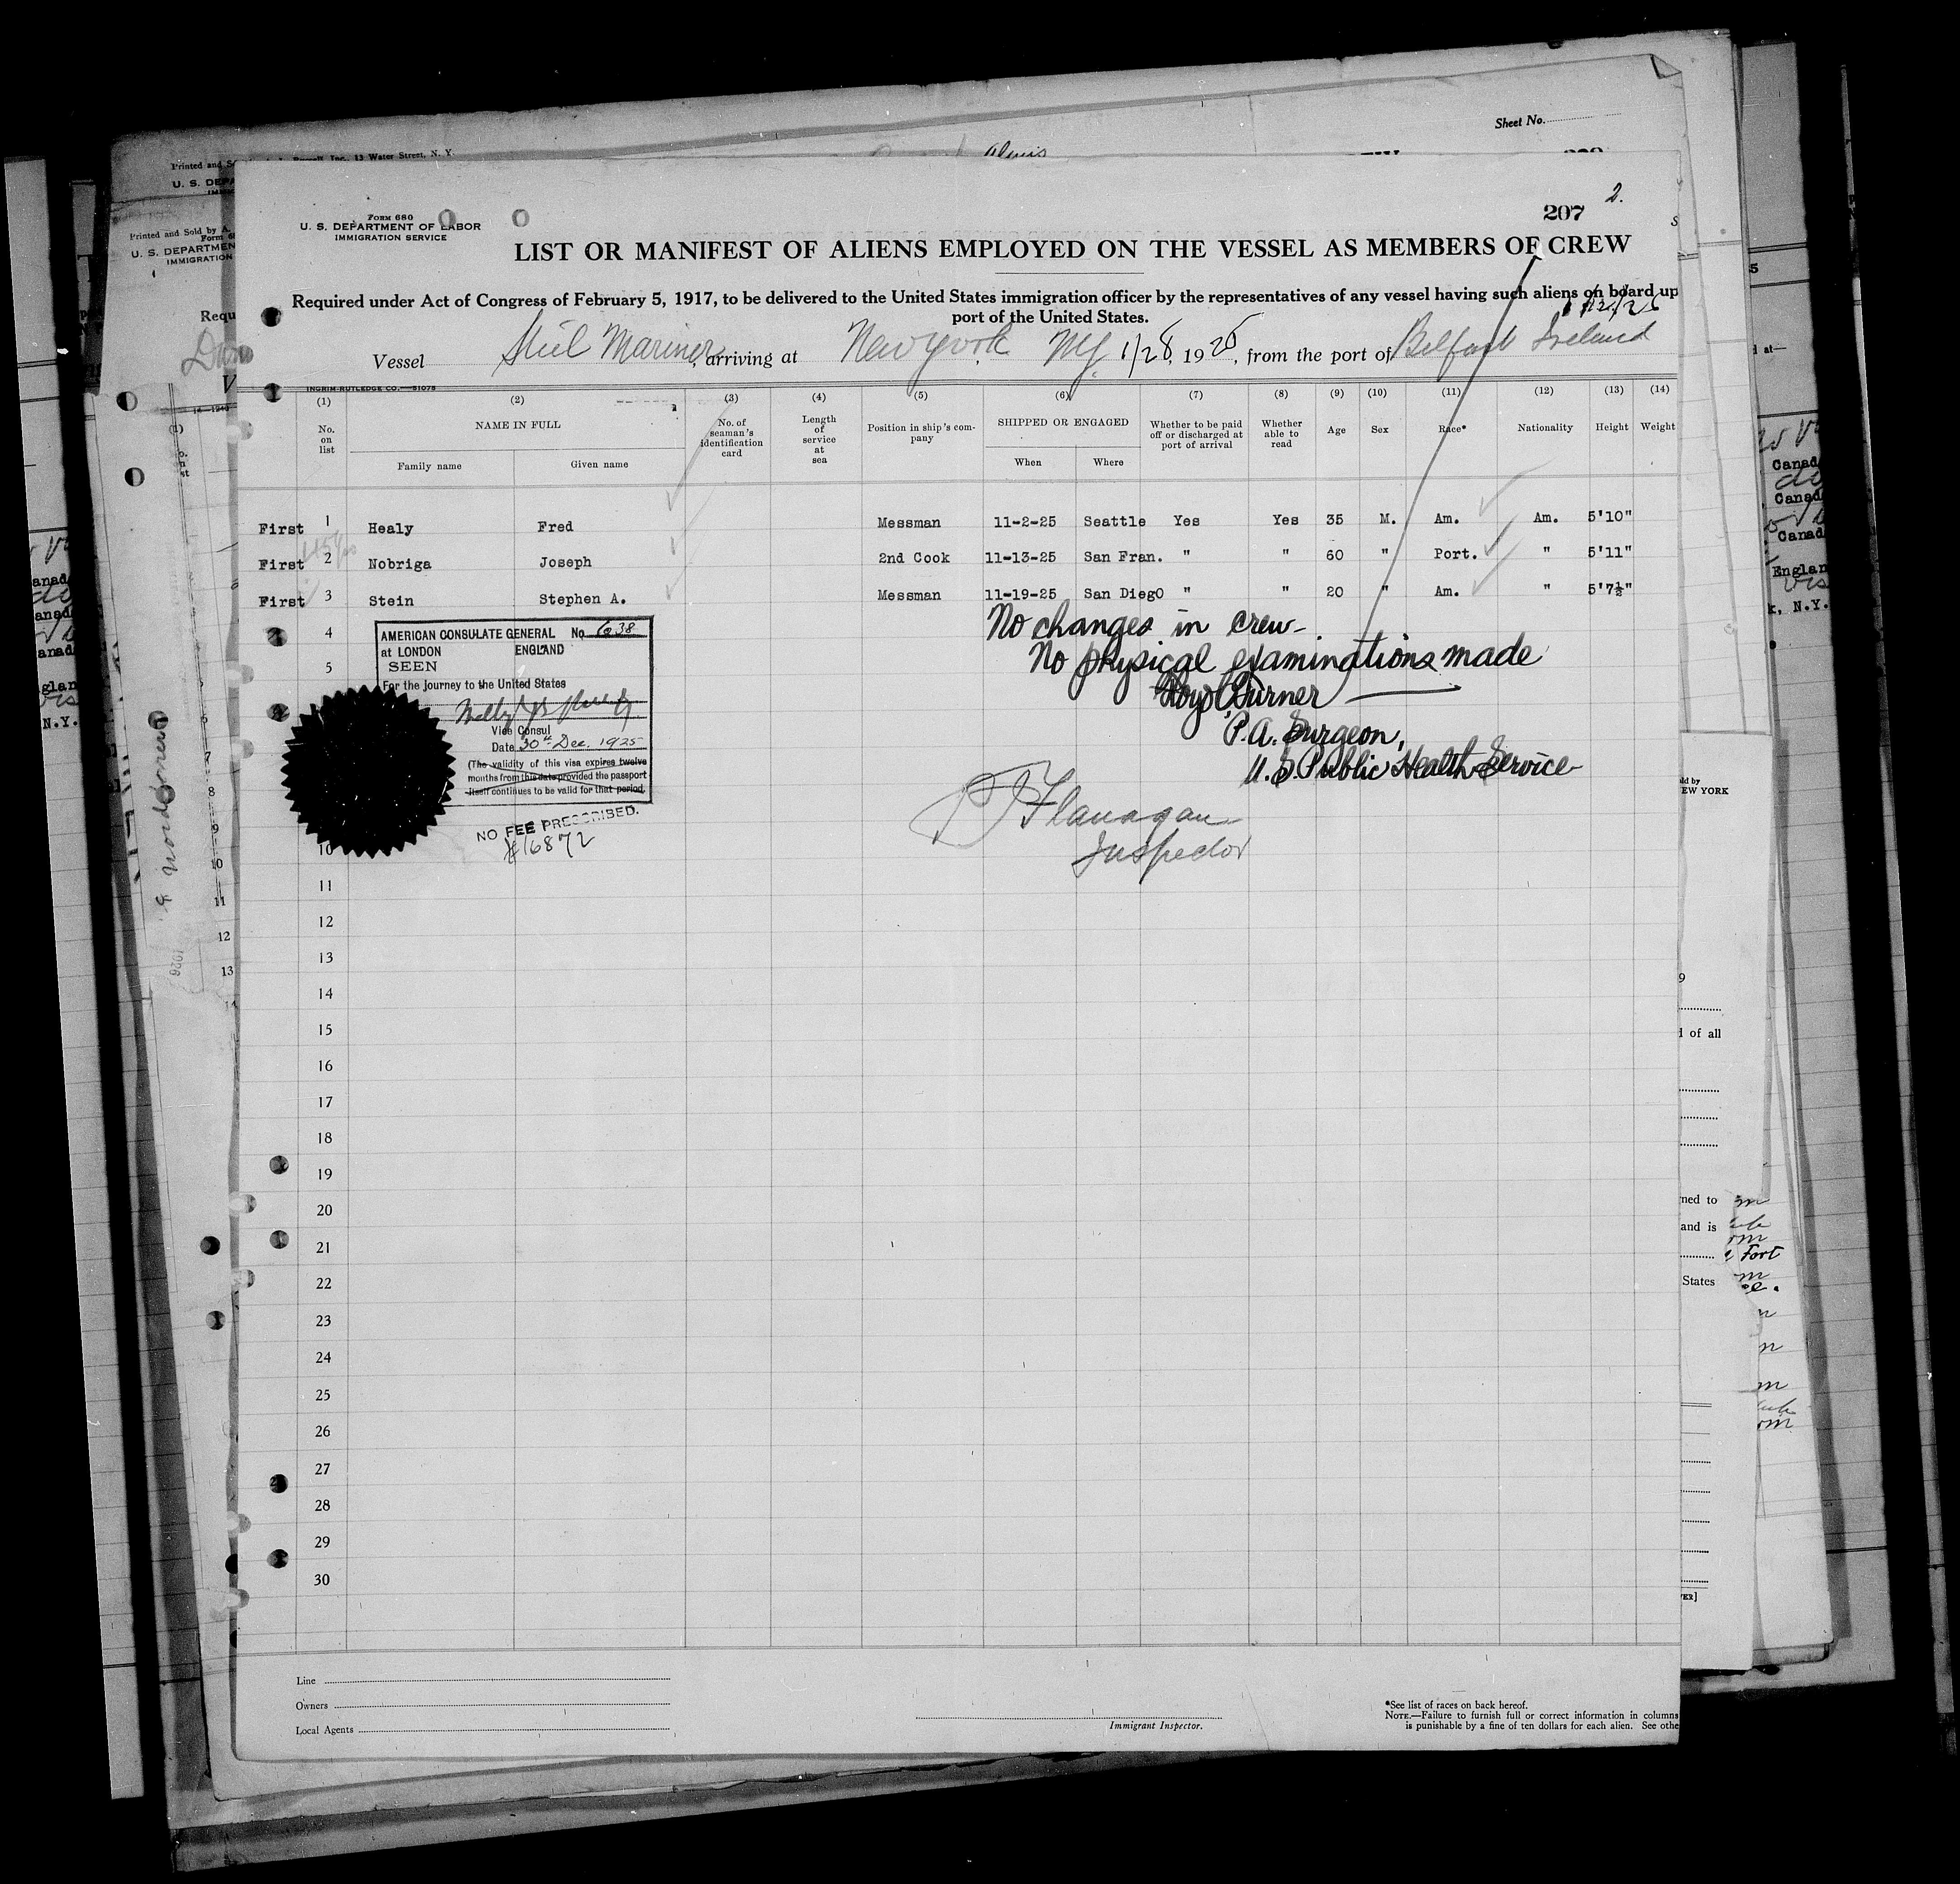 Sheet No.
Printed and
U. S. DEPA
Printed and Sold by A.
U. S. DEPARTMEN
IMMIGRATION
207 2.
FORM 680
U. S. DEPARTMENT OF LABOR
IMMIGRATION SERVICE
LIST OR MANIFEST OF ALIENS EMPLOYED ON THE VESSEL AS MEMBERS OF CREW
Required under Act of Congress of February 5, 1917, to be delivered to the United States immigration officer by the representatives of any vessel having such aliens on board up
port of the United States.
Vessel Steel Mariner, arriving at New York NY 1/28, 1926, from the port of Belfast Ireland
INGRIM-RUTLEDGE CO.—51075
(1) (2) (3) (4) (5) (6) (7) (8) (9) (10) (11) (12) (13) (14)
No. on list NAME IN FULL No. of seaman's identification card Length of service at sea Position in ship's company SHIPPED OR ENGAGED Whether to be paid off or discharged at port of arrival Whether able to read Age Sex Race* Nationality Height Weight
Family name Given name When Where
First 1 Healy Fred Messman 11-2-25 Seattle Yes Yes 35 M. Am. Am. 5'10"
First 2 Nobriga Joseph 2nd Cook 11-13-25 San Fran. " " 60 " Port. " 5'11"
First 3 Stein Stephen A. Messman 11-19-25 San Diego " " 20 " Am. " 5'7½"
No changes in crew
No physical examinations made
Turner
P.A. Surgeon,
U.S. Public Health Service
Flanagan
Inspector
4
5
AMERICAN CONSULATE GENERAL No 638
at LONDON ENGLAND
SEEN
For the journey to the United States
Vice Consul
Date 30th Dec. 1925
(The validity of this visa expires twelve
months from this date provided the passport
itself continues to be valid for that period.
NO FEE PRESCRIBED.
#16872
10
11
12
13
14
15
16
17
18
19
20
21
22
23
24
25
26
27
28
29
30
Line
Owners
Local Agents
Immigrant Inspector.
*See list of races on back hereof.
NOTE.—Failure to furnish full or correct information in columns
is punishable by a fine of ten dollars for each alien. See othe